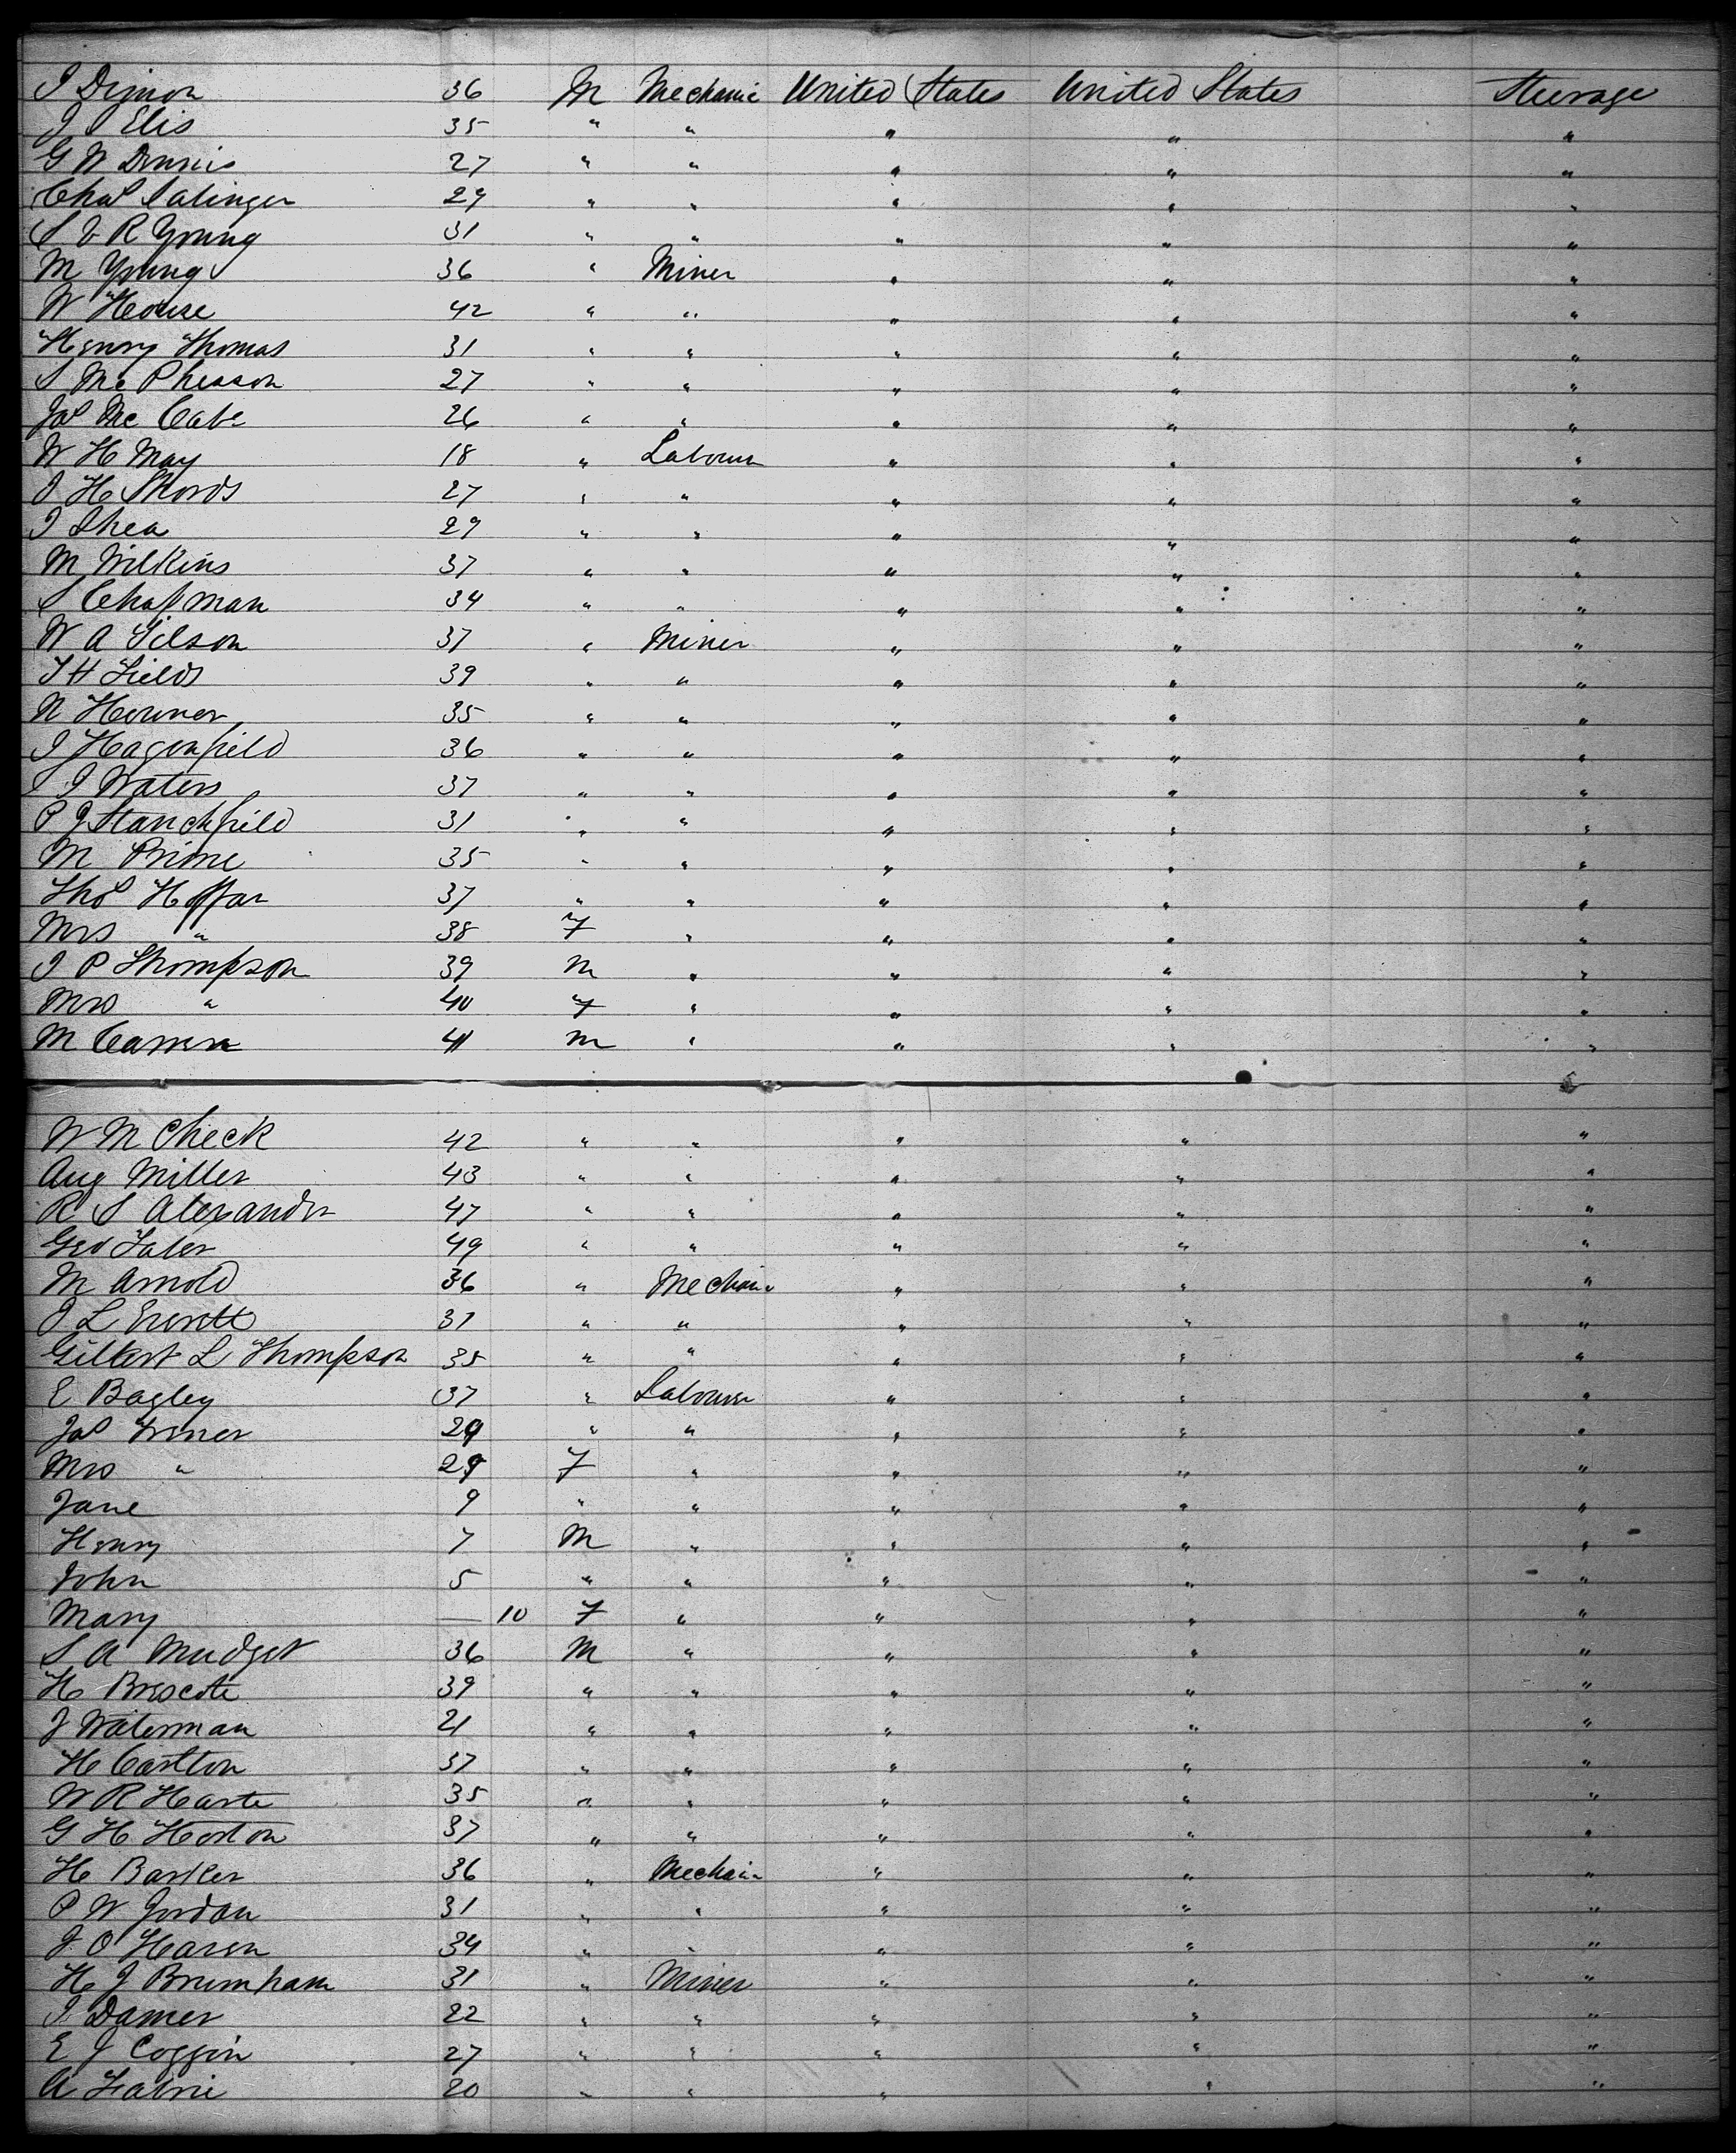 I Dimon 36 M Mechanic United States United States Steerage
J Elis 35 " " " " "
G W Dennis 27 " " " " "
Chas Salinger 29 " " " " "
S & R Young 31 " " " " "
M Young 36 " Miner " " "
W House 42 " " " " "
Henry Thomas 31 " " " " "
S Mc Pherson 27 " " " " "
Jas Mc Cabe 26 " " " " "
W H May 18 " Labourer " " "
I H Shords 27 " " " " "
I Shea 29 " " " " "
M Wilkins 37 " " " " "
S Chapman 34 " " " " "
W A Gilson 37 " Miner " " "
T H Fields 39 " " " " "
N Horner 35 " " " " "
I Hagenfield 36 " " " " "
S I Waters 37 " " " " "
P J Stanchfield 31 " " " " "
M Prime 35 " " " " "
Thos Heffar 37 " " " " "
Mrs " 38 F " " " "
I P Thompson 39 M " " " "
Mrs " 40 F " " " "
M 41 M " " " "
W M Cheek 42 " " " " "
Aug Miller 43 " " " " "
R S Alexander 47 " " " " "
Geo 49 " " " " "
M Arnold 36 " Mechanic " " "
I L Everett 37 " " " " "
Gilbert L Thompson 35 " " " " "
E Bagley 37 " Labourer " " "
Jas 29 " " " " "
Mrs " 29 F " " " "
Jane 9 " " " " "
Henry 7 M " " " "
John 5 " " " " "
Mary — 10 F " " " "
S A Mudget 36 M " " " "
H Brescote 39 " " " " "
J Waterman 21 " " " " "
H Carlton 37 " " " " "
W R Harte 35 " " " " "
G H Horton 37 " " " " "
H Barker 36 " Mechanic " " "
P W Jordan 31 " " " " "
J O Haren 34 " " " " "
H J Brumham 31 " Miner " " "
I Damer 22 " " " " "
E J Coggin 27 " " " " "
A 20 " " " " "